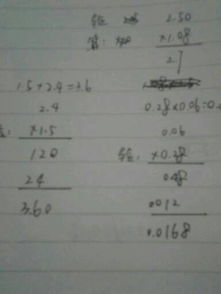 2.50
×1.08
2.7
1.5×2.4=3.6
2.4
×1.5
120
24
3.60
0.28×0.06=0.0
0.06
×0.28
0.48
0.012
0.0168